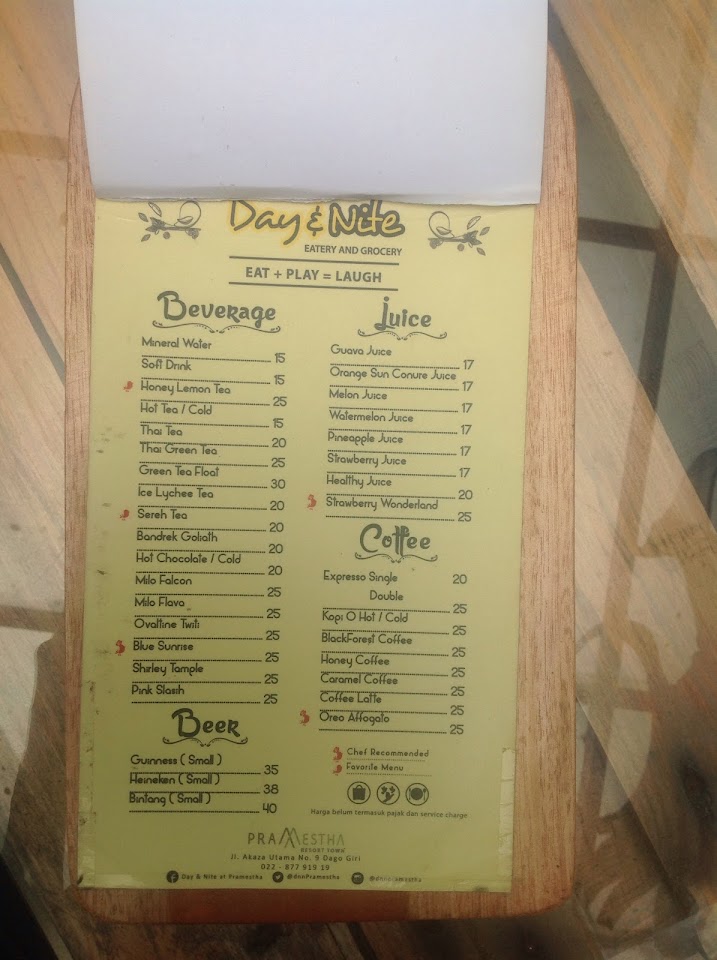 Day & Nite
EATERY AND GROCERY
EAT + PLAY = LAUGH
Beverage
Mineral Water 15
Soft Drink 15
Honey Lemon Tea 25
Hot Tea / Cold 15
Thai Tea 20
Thai Green Tea 25
Green Tea Float 30
Ice Lychee Tea 20
Sereh Tea 20
Bandrek Goliath 20
Hot Chocolate / Cold 20
Milo Falcon 25
Milo Flavo 25
Ovaltine Twiti 25
Blue Sunrise 25
Shirley Tample 25
Pink Slasih 25
Beer
Guinness ( Small ) 35
Heineken ( Small ) 38
Bintang ( Small ) 40
Juice
Guava Juice 17
Orange Sun Conure Juice 17
Melon Juice 17
Watermelon Juice 17
Pineapple Juice 17
Strawberry Juice 17
Healthy Juice 20
Strawberry Wonderland 25
Coffee
Expresso Single 20
Double 25
Kopi O Hot / Cold 25
BlackForest Coffee 25
Honey Coffee 25
Caramel Coffee 25
Coffee Latte 25
Oreo Affogato 25
Chef Recommended
Favorite Menu
Harga belum termasuk pajak dan service charge
PRAMESTHA
RESORT TOWN
Jl. Akaza Utama No. 9 Dago Giri
022 - 877 919 19
Day & Nite at Pramestha @dnnPramestha @dnnpramestha